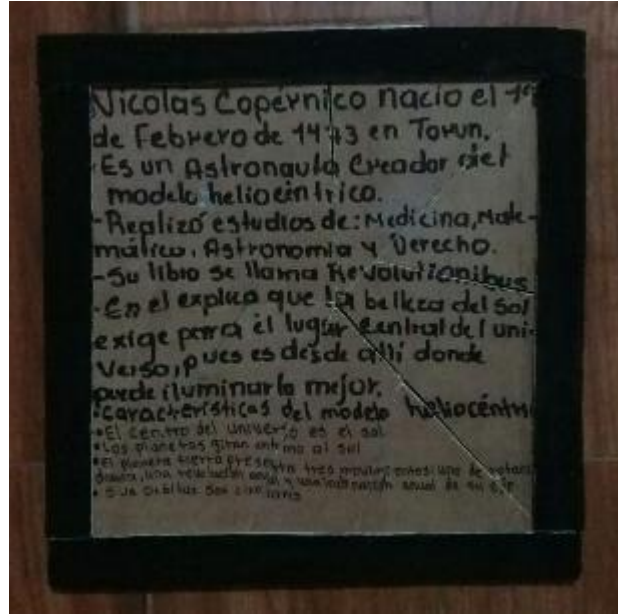 Nicolas Copérnico nacio el 19
de Febrero de 1473 en Torun.
-Es un Astronauta Creador del
modelo heliocéntrico.
-Realizó estudios de: Medicina, Mate-
mática, Astronomia y Derecho.
-Su libro se llama Revolutionibus
-En el explica que la belleza del sol
exige para el lugar central del uni-
verso, pues es desde allí donde
puede iluminarla mejor.
•características del modelo heliocéntri
•El centro del universo es el sol
•Los planetas giran entorno al sol
•El planeta tierra presenta tres movimientos: uno de rotaci
diaria, una revolución anual y una inclinación anual de su eje
•Sus orbitas son